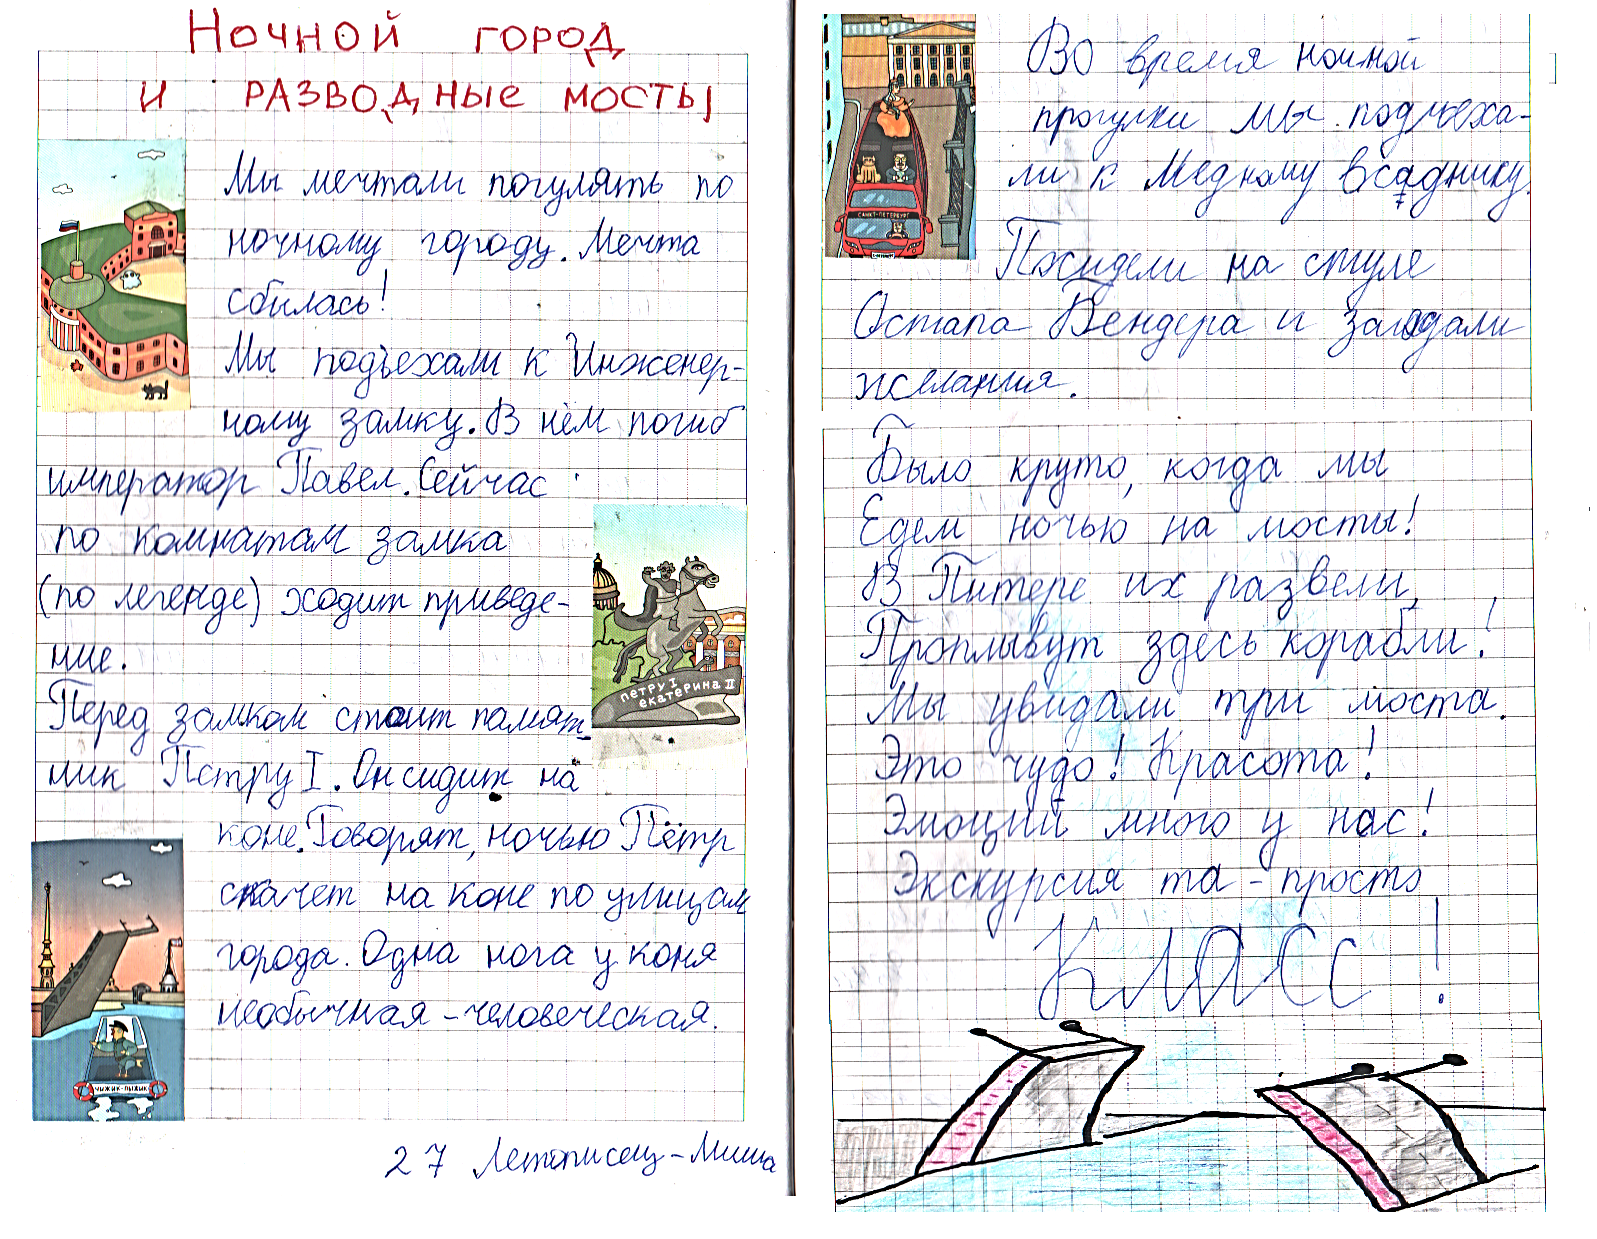 Ночной город
и разводные мосты
Мы мечтали погулять по
ночному городу. Мечта
сбылась!
Мы подъехали к Инженер-
ному замку. В нём погиб
император Павел. Сейчас
по комнатам замка
(по легенде) ходит приведе-
ние.
Перед замком стоит памят-
ник Петру I. Он сидит на
коне. Говорят, ночью Пётр
скачет на коне по улицам
города. Одна нога у коня
необычная - человеческая.
ПЕТРУ I
ЕКАТЕРИНА II
ЧИЖИК-ПЫЖИК
27 Летописец - Миша
САНКТ-ПЕТЕРБУРГ
Во время ночной
прогулки мы подъеха-
ли к Медному всаднику.
Посидели на стуле
Остапа Бендера и загадали
желания.
Было круто, когда мы
Едем ночью на мосты!
В Питере их развели,
Проплывут здесь корабли!
Мы увидали три моста.
Это чудо! Красота!
Эмоций много у нас!
Экскурсия та - просто
Класс!